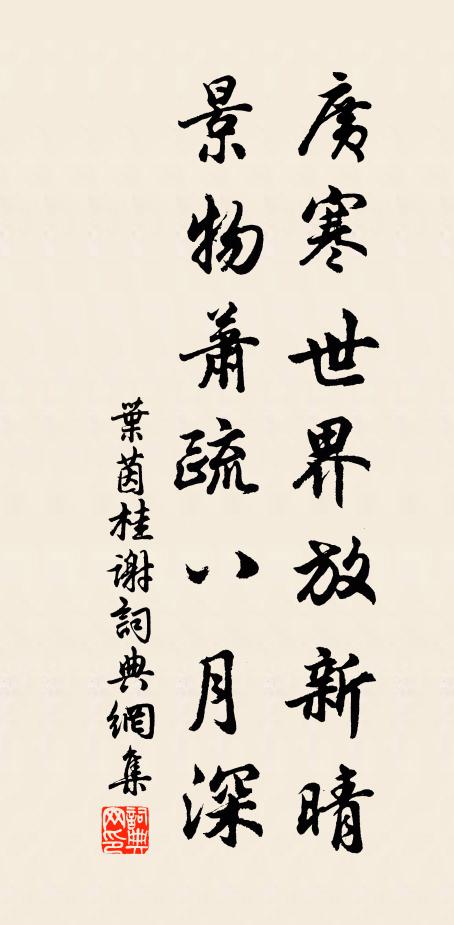 廣寒世界放新晴
景物蕭疏八月深
葉茵桂謝詞典網集
詞典網印